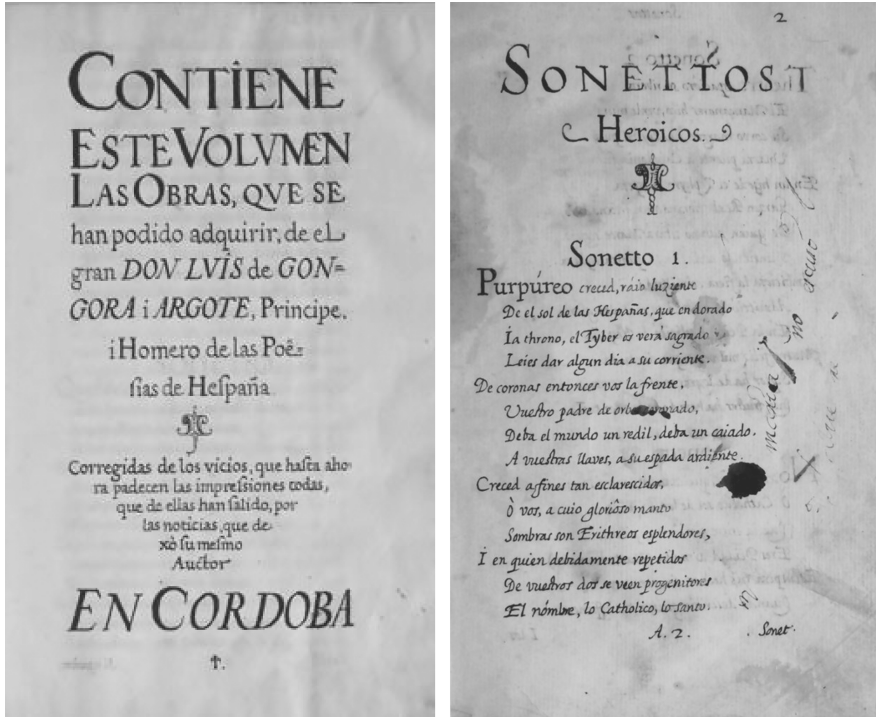 CONTIENE
ESTE VOLVMEN
LAS OBRAS, QVE SE
han podido adquirir, de el
gran DON LVIS de GON=
GORA i ARGOTE, Principe,
i Homero de las Poë=
sias de Heſpaña
Corregidas de los vicios, que haſta aho
ra padecen las impreſsiones todas,
que de ellas han ſalido, por
las noticias, que de
xò ſu meſmo
Auctor
EN CORDOBA
2
SONETTOS
Heroicos.
Sonetto 1.
Purpúreo creced, ráio luziente
De el sol de las Hespañas, que en dorado
Ia throno, el Tyber os verá sagrado
Leies dar algun dia a su corriente.
De coronas entonces vos la frente,
Vuestro padre de orbes
Deba el mundo un redil, deba un caiado.
A vuestras llaves, a su espada ardiente.
Creced a fines tan esclarescidos,
Ò vos, a cuio glorióso manto
Sombras son Erithreos esplendores,
I en quien debidamente repetidos
De vuestros dos se veen progenitores
El nómbre, lo Catholico, lo santo.
A. 2. Sonet.
no